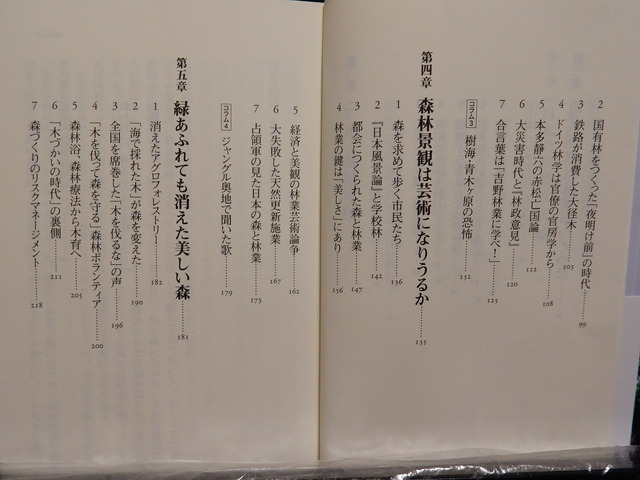 2 国有林をつくった「夜明け前」の時代 99
3 鉄路が消費した大径木 103
4 ドイツ林学は官僚の官房学から 108
5 本多静六の赤松亡国論 112
6 大災害時代と『林政意見』 120
7 合言葉は「吉野林業に学べ!」 125
コラム3 樹海・青木ヶ原の恐怖 132
第四章 森林景観は芸術になりうるか 135
1 森を求めて歩く市民たち 136
2 『日本風景論』と学校林 142
3 都会につくられた森と林業 147
4 林業の鍵は「美しさ」にあり 156
5 経済と美観の林業芸術論争 162
6 大失敗した天然更新施業 167
7 占領軍の見た日本の森と林業 173
コラム4 ジャングル奥地で聞いた歌 179
第五章 緑あふれても消えた美しい森 181
1 消えたアグロフォレストリー 182
2 「海で採れた木」が森を変えた 190
3 全国を席巻した「木を伐るな」の声 196
4 「木を伐って森を守る」森林ボランティア 200
5 森林浴、森林療法から木育へ 205
6 「木づかいの時代」の裏側 211
7 森づくりのリスクマネージメント 218